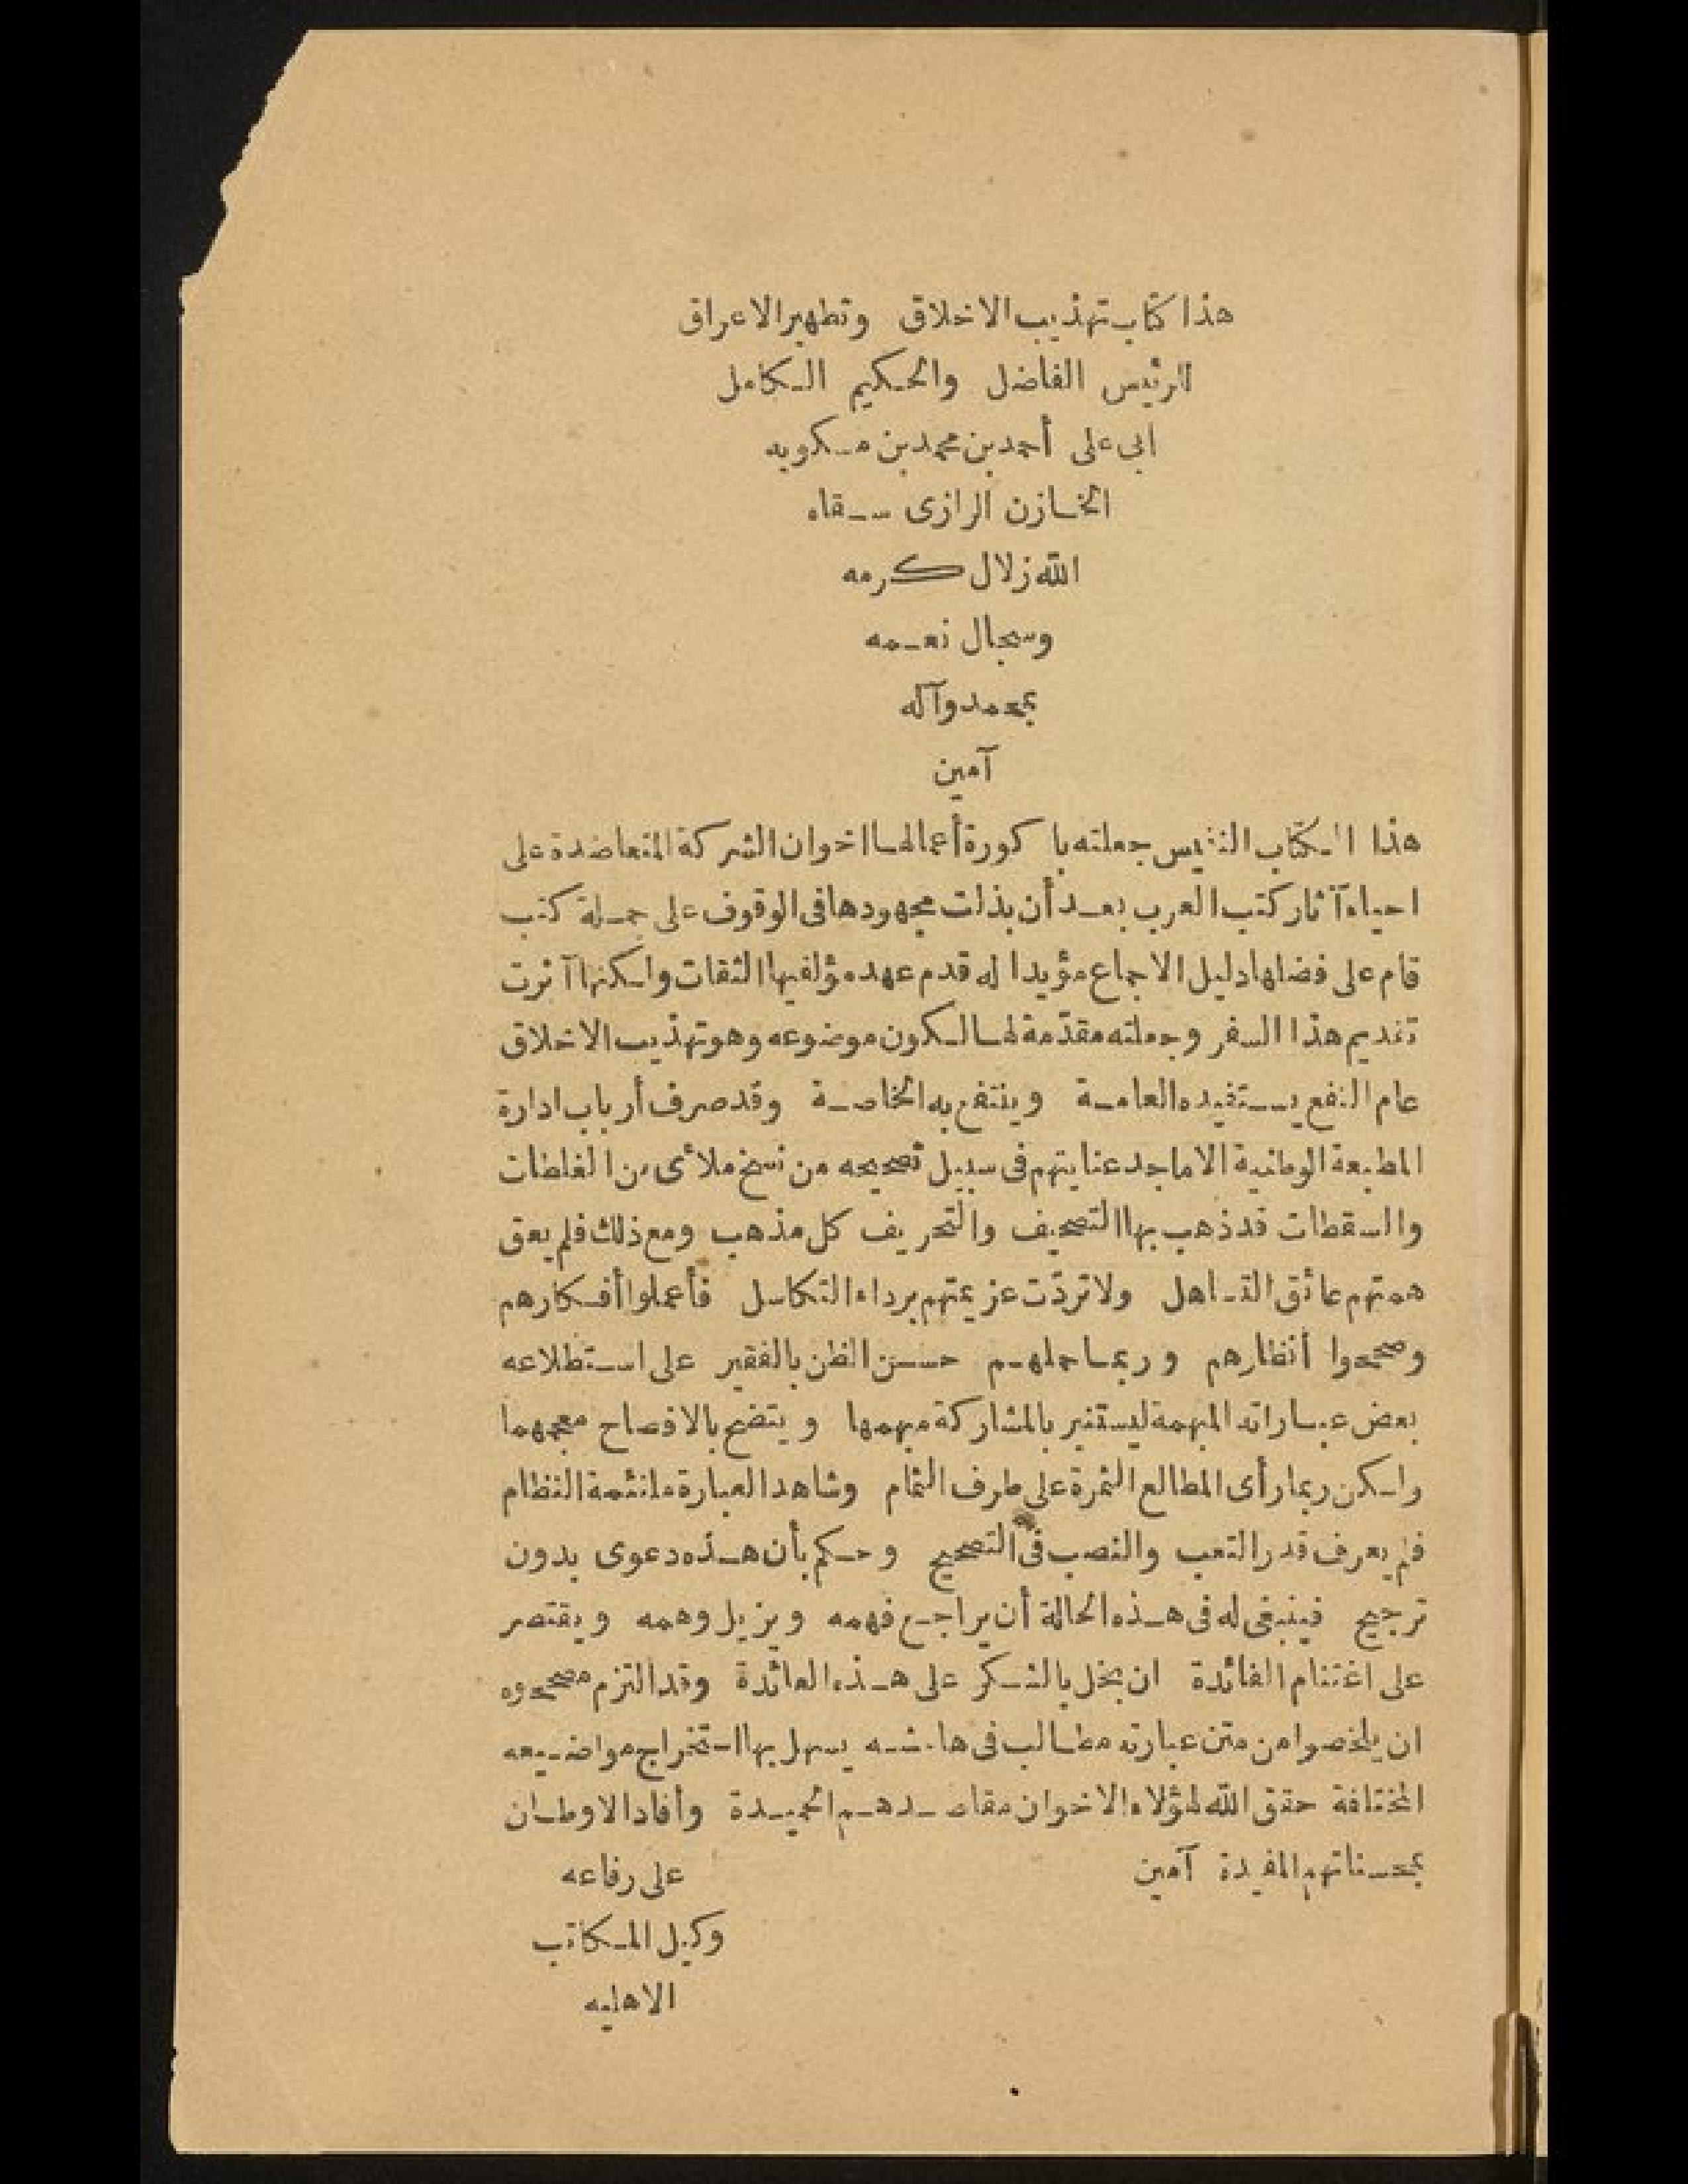 هذا كتاب تهذيب الاخلاق وتطهير الاعراق
للرئيس الفاضل والحكيم الكامل
ابى على أحمد بن محمد بن مسكويه
الخازن الرازى سقاه
الله زلال كرمه
وسجال نعمه
بمحمد وآله
آمين
هذا الكتاب النفيس جعلته باكورة أعمالها اخوان الشركة المتعاضدة على
احياء آثار كتب العرب بعد أن بذلت مجهودها فى الوقوف على جملة كتب
قام على فضلها دليل الاجماع مؤيدا له قدم عهد مؤلفيها الثقات ولكنها آثرت
تقديم هذا السفر وجعلته مقدّمة لها لكون موضوعه وهو تهذيب الاخلاق
عام النفع يستفيده العامة وينتفع به الخاصة وقد صرف أرباب ادارة
المطبعة الوطنية الاماجد عنايتهم فى سبيل تصحيحه من نسخ ملأى من الغلطات
والسقطات قد ذهب بها التصحيف والتحريف كل مذهب ومع ذلك فلم يعق
همتهم عائق التساهل ولا تردّت عزيمتهم برداء التكاسل فأعملوا أفكارهم
وصححوا أنظارهم وربما حملهم حسن الظن بالفقير على استطلاعه
بعض عباراته المبهمة ليستنير بالمشاركة مبهمها ويتضح بالافصاح معجمها
ولكن ربما رأى المطالع الثمرة على طرف الثمام وشاهد العبارة ملتئمة النظام
فلم يعرف قدر التعب والنصب فى التصحيح وحكم بأن هذه دعوى بدون
ترجيح فينبغى له فى هذه الحالة أن يراجع فهمه ويزيل وهمه ويقتصر
على اغتنام الفائدة ان بخل بالشكر على هذه العائدة وقد التزم مصححوه
ان يلخصوا من متن عبارته مطالب فى هامشه يسهل بها استخراج مواضيعه
المختلفة حقق الله لهؤلاء الاخوان مقاصدهم الحميدة وأفاد الاوطان
بمحسناتهم المفيدة آمين على رفاعه
وكيل المكاتب
الاهليه